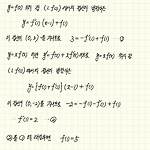 y=f(x) 위의 점 (1, f(1))에서의 접선의 방정식은
y=f'(1)(x-1)+f(1)
이 접선이 (0, 3)을 지나므로 3=-f'(1)+f(1) … ㉠
y=xf(x) 에서 y'=f(x)+xf'(x)이므로 y=xf(x) 위의 점
(1, f(1))에서의 접선의 방정식은
y={f(1)+f'(1)}(x-1)+f(1)
이 접선이 (0, -2)를 지나므로 -2=-f'(1)-f(1)+f(1)
∴ f'(1)=2 … ㉡
㉡을 ㉠에 대입하면 f(1)=5